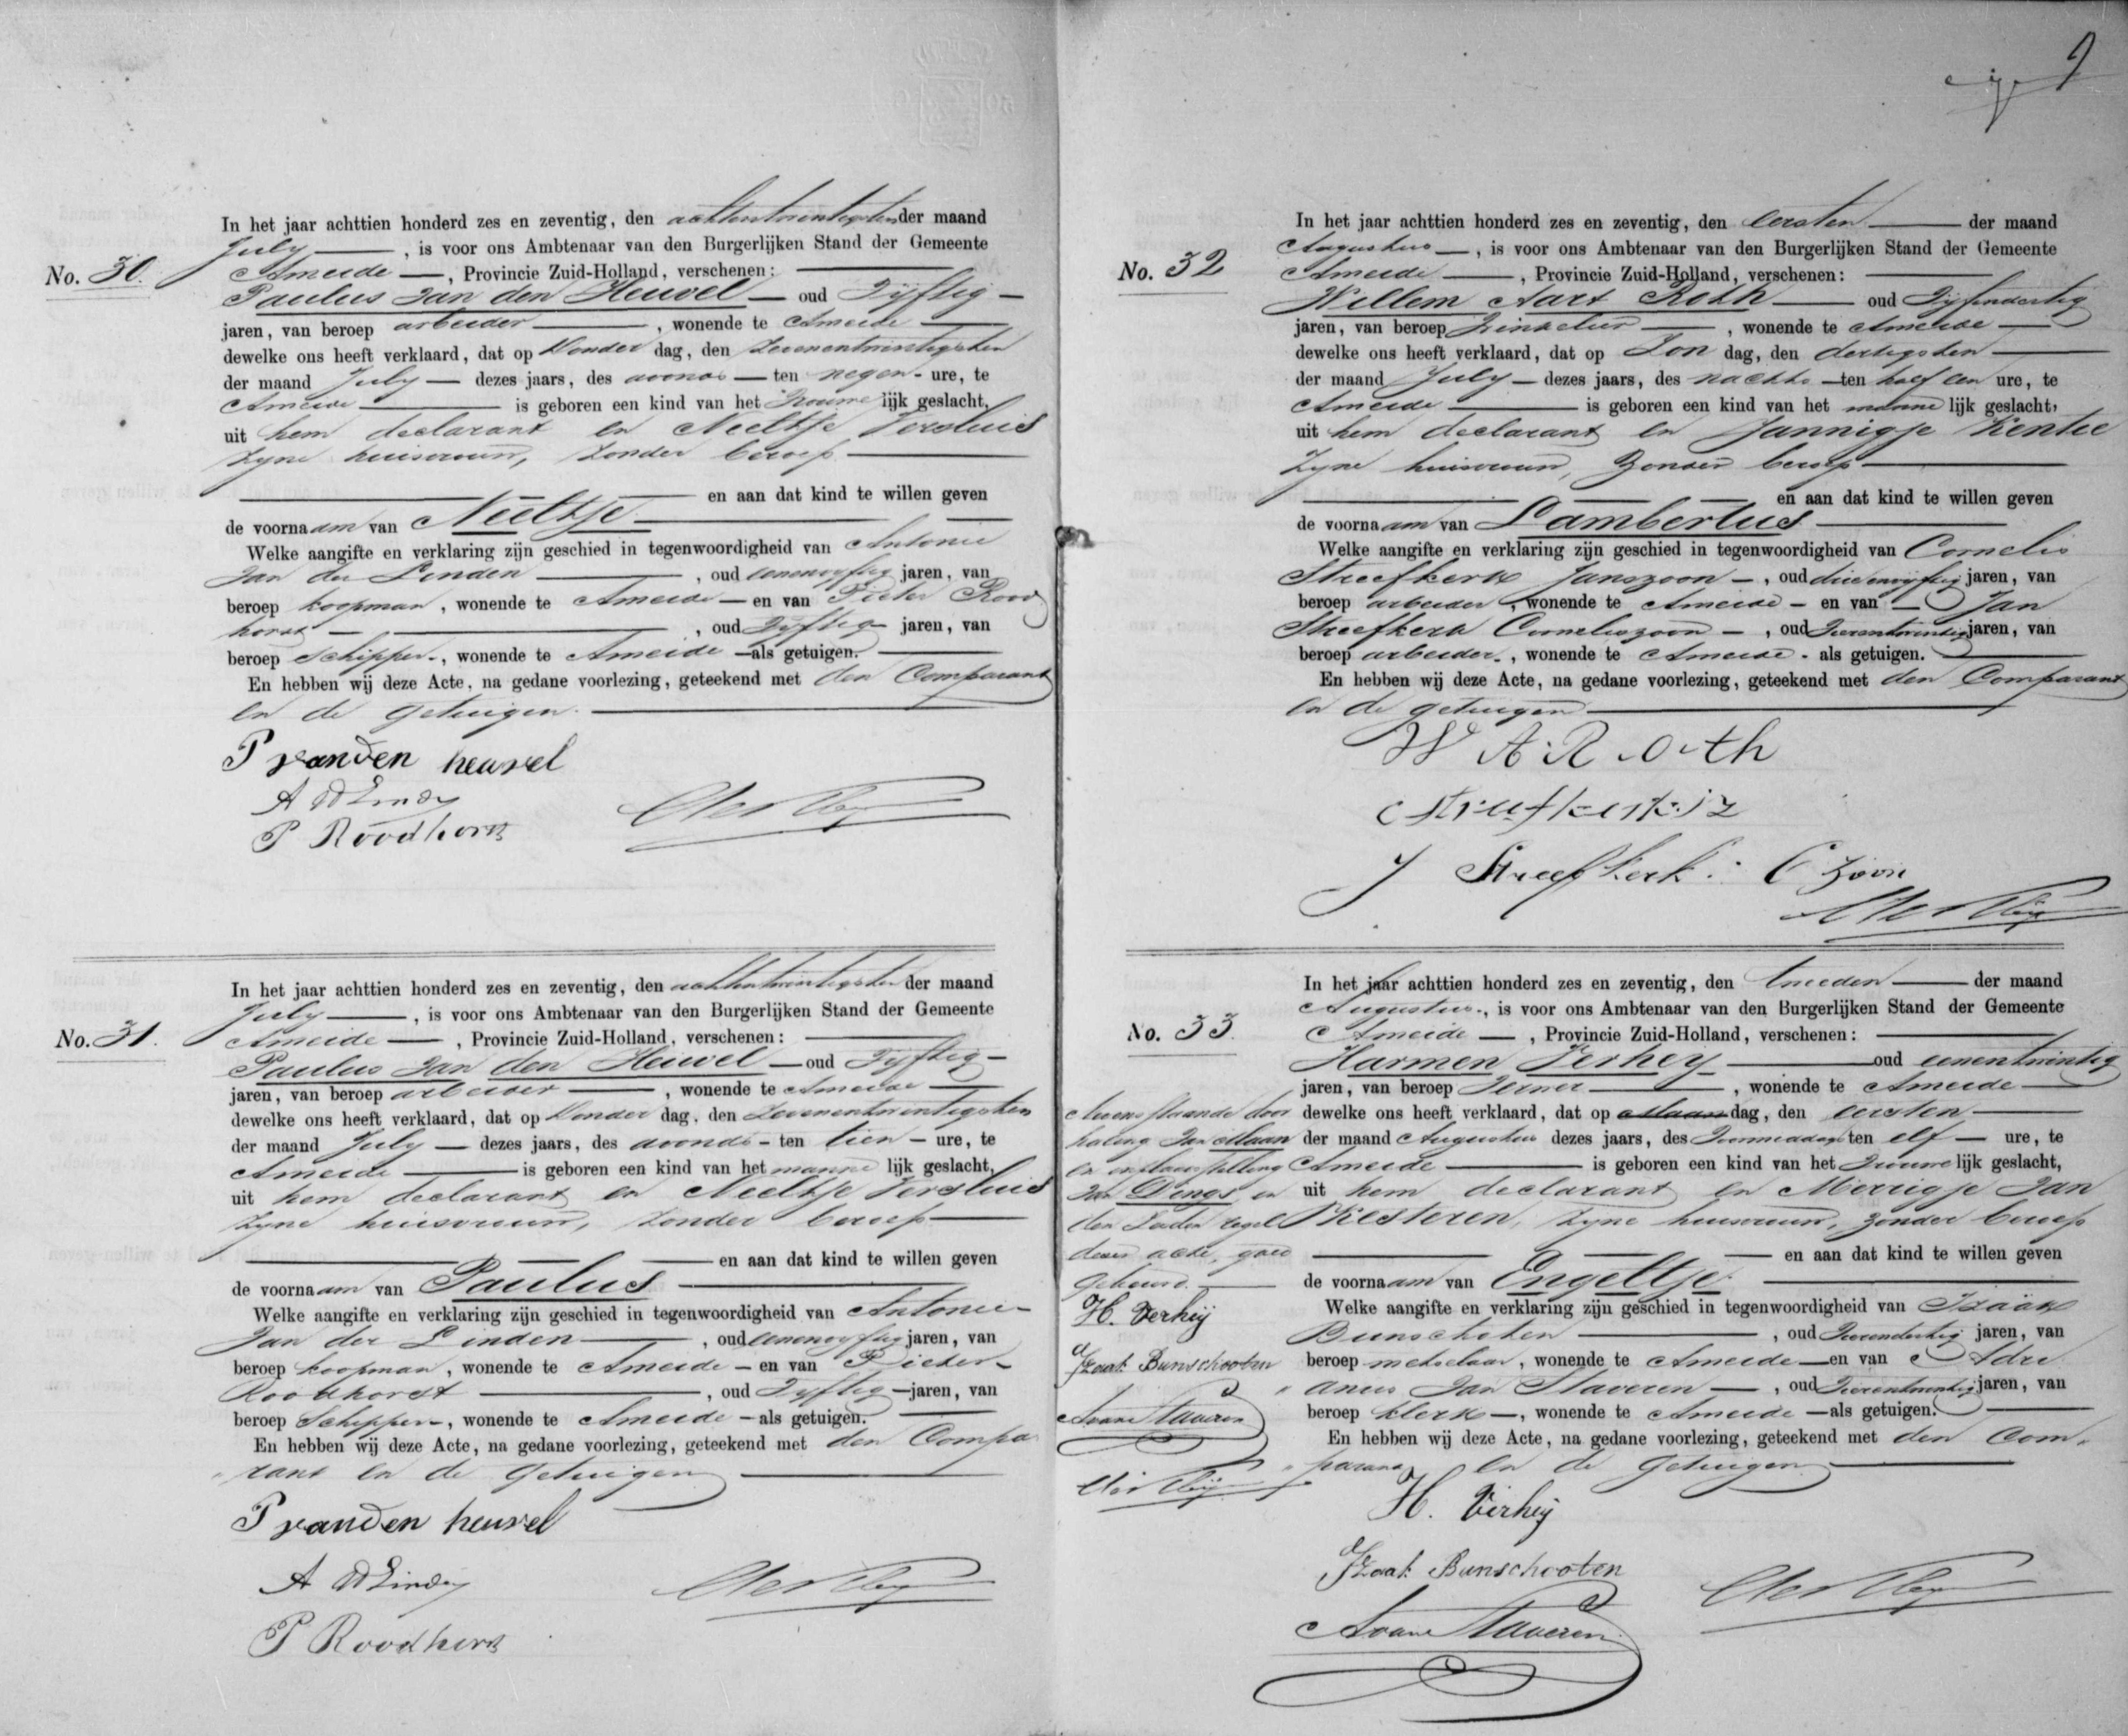 9
No. 30.
In het jaar achttien honderd zes en zeventig, den achtentwintigsten der maand
July —, is voor ons Ambtenaar van den Burgerlijken Stand der Gemeente
Ameide —, Provincie Zuid-Holland, verschenen: —
Paulus van den Heuvel — oud vyftig —
jaren, van beroep arbeider —, wonende te Ameide —
dewelke ons heeft verklaard, dat op donder dag, den zevenentwintigsten
der maand July — dezes jaars, des avonds — ten negen - ure, te
Ameide — is geboren een kind van het vrouwe lijk geslacht,
uit hem declarant en Neeltje Versluis
zyne huisvrouw, zonder beroep —
— en aan dat kind te willen geven
de voornaam van Neeltje —
Welke aangifte en verklaring zijn geschied in tegenwoordigheid van Antonie
van der Linden —, oud eenenvyftig jaren, van
beroep koopman, wonende te Ameide — en van Pieter Rood
horst —, oud vyftig jaren, van
beroep Schipper -, wonende te Ameide — als getuigen. —
En hebben wij deze Acte, na gedane voorlezing, geteekend met den Comparant
en de getuigen. —
P vanden heuvel
A vd Linden
P Roodhorst
No. 31.
In het jaar achttien honderd zes en zeventig, den achtentwintigsten der maand
July —, is voor ons Ambtenaar van den Burgerlijken Stand der Gemeente
Ameide —, Provincie Zuid-Holland, verschenen: —
Paulus van den Heuvel — oud vyftig —
jaren, van beroep arbeider —, wonende te Ameide —
dewelke ons heeft verklaard, dat op donder dag, den zevenentwintigsten
der maand July — dezes jaars, des avonds - ten tien - ure, te
Ameide — is geboren een kind van het manne lijk geslacht,
uit hem declarant en Neeltje Versluis
zyne huisvrouw, zonder beroep —
— en aan dat kind te willen geven
de voornaam van Paulus —
Welke aangifte en verklaring zijn geschied in tegenwoordigheid van Antonie
van der Linden —, oud eenenvyftig jaren, van
beroep koopman, wonende te Ameide — en van Pieter
Roodhorst —, oud vyftig — jaren, van
beroep Schipper -, wonende te Ameide — als getuigen. —
En hebben wij deze Acte, na gedane voorlezing, geteekend met den Compa
„ rant en de getuigen —
P vanden heuvel
A vd Linden
P Roodhorst
No. 32
In het jaar achttien honderd zes en zeventig, den eersten — der maand
Augustus —, is voor ons Ambtenaar van den Burgerlijken Stand der Gemeente
Ameide —, Provincie Zuid-Holland, verschenen: —
Willem Aart Roth — oud vyfendertig
jaren, van beroep winkelier —, wonende te Ameide —
dewelke ons heeft verklaard, dat op Zon dag, den dertigsten —
der maand July — dezes jaars, des nachts — ten half een ure, te
Ameide — is geboren een kind van het manne lijk geslacht,
uit hem declarant en Jannigje Kentie
zyne huisvrouw, zonder beroep —
— en aan dat kind te willen geven
de voornaam van Lambertus —
Welke aangifte en verklaring zijn geschied in tegenwoordigheid van Cornelis
Streefkerk Janszoon —, oud drieenvyftig jaren, van
beroep arbeider, wonende te Ameide — en van — Jan
Streefkerk Corneliszoon —, oud vierentwintig jaren, van
beroep arbeider., wonende te Ameide - als getuigen. —
En hebben wij deze Acte, na gedane voorlezing, geteekend met den Comparant
en de getuigen —
W A Roth
C Streefkerk Jz
J Streefkerk. C zoon
No. 33.
In het jaar achttien honderd zes en zeventig, den tweeden — der maand
Augustus -, is voor ons Ambtenaar van den Burgerlijken Stand der Gemeente
Ameide —, Provincie Zuid-Holland, verschenen: —
Harmen Verhey — oud eenentwintig
jaren, van beroep Verwer —, wonende te Ameide —
dewelke ons heeft verklaard, dat op Maan dag, den eersten —
der maand Augustus dezes jaars, des voormiddags ten elf — ure, te
Ameide — is geboren een kind van het vrouwe lijk geslacht,
uit hem declarant en Merrigje van
Kesteren, zyne huisvrouw, zonder beroep
— en aan dat kind te willen geven
de voornaam van Engeltje —
Welke aangifte en verklaring zijn geschied in tegenwoordigheid van Izaak
Bunschoten —, oud vierendertig jaren, van
beroep metselaar, wonende te Ameide — en van Adri
„ anus van Staveren —, oud vierentwintig jaren, van
beroep klerk —, wonende te Ameide — als getuigen. —
En hebben wij deze Acte, na gedane voorlezing, geteekend met den Com„
„ parant en de getuigen. —
H. Verheij
Izaak Bunschooten
A van Staveren
Bovenstaande door
haling van Maan
en inplaatsstelling
van Dings in
den zesden regel
dezer acte, goed
gekeurd. —
H. Verheij
Izaak Bunschooten
A van Staveren